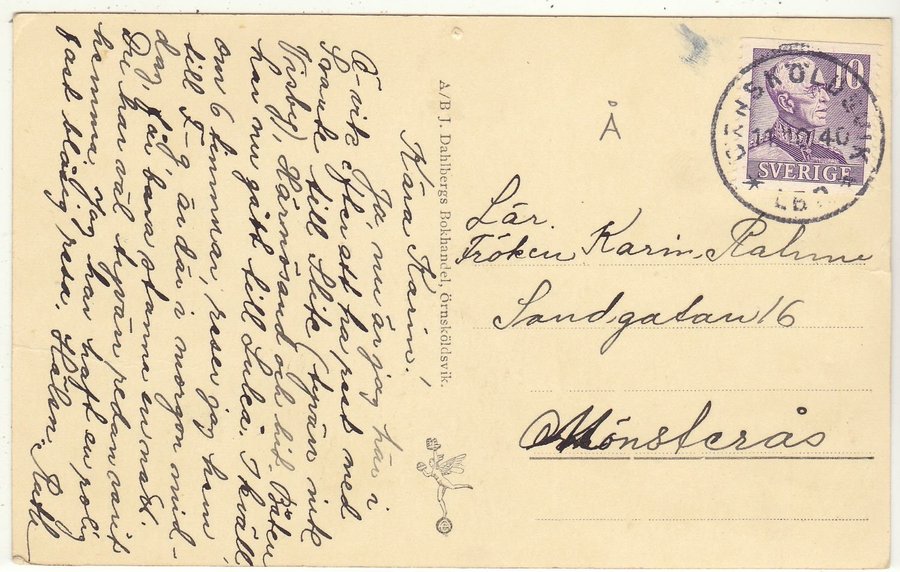 Kära Karin!
Ja, nu är jag här i
Ö-vik efter att ha rest med
Svante till Slite (tyvärr inte
Visby), Härnösand och hit. Båten
har nu gått till Luleå. I kväll
om 6 timmar, reser jag hem
till F-g är där i morgon mid-
dag, får bara stanna en natt.
Du har väl tyvärr redan varit
hemma. Jag har haft en rolig
fast blåsig resa. Hälsn. Ruth
A/B J. Dahlbergs Bokhandel, Örnsköldsvik.
Å
10
SVERIGE
ÖRNSKÖLDSVIK
11.10.40
LBR
Lär.
Fröken Karin Rahme
Sandgatan 16
Mönsterås